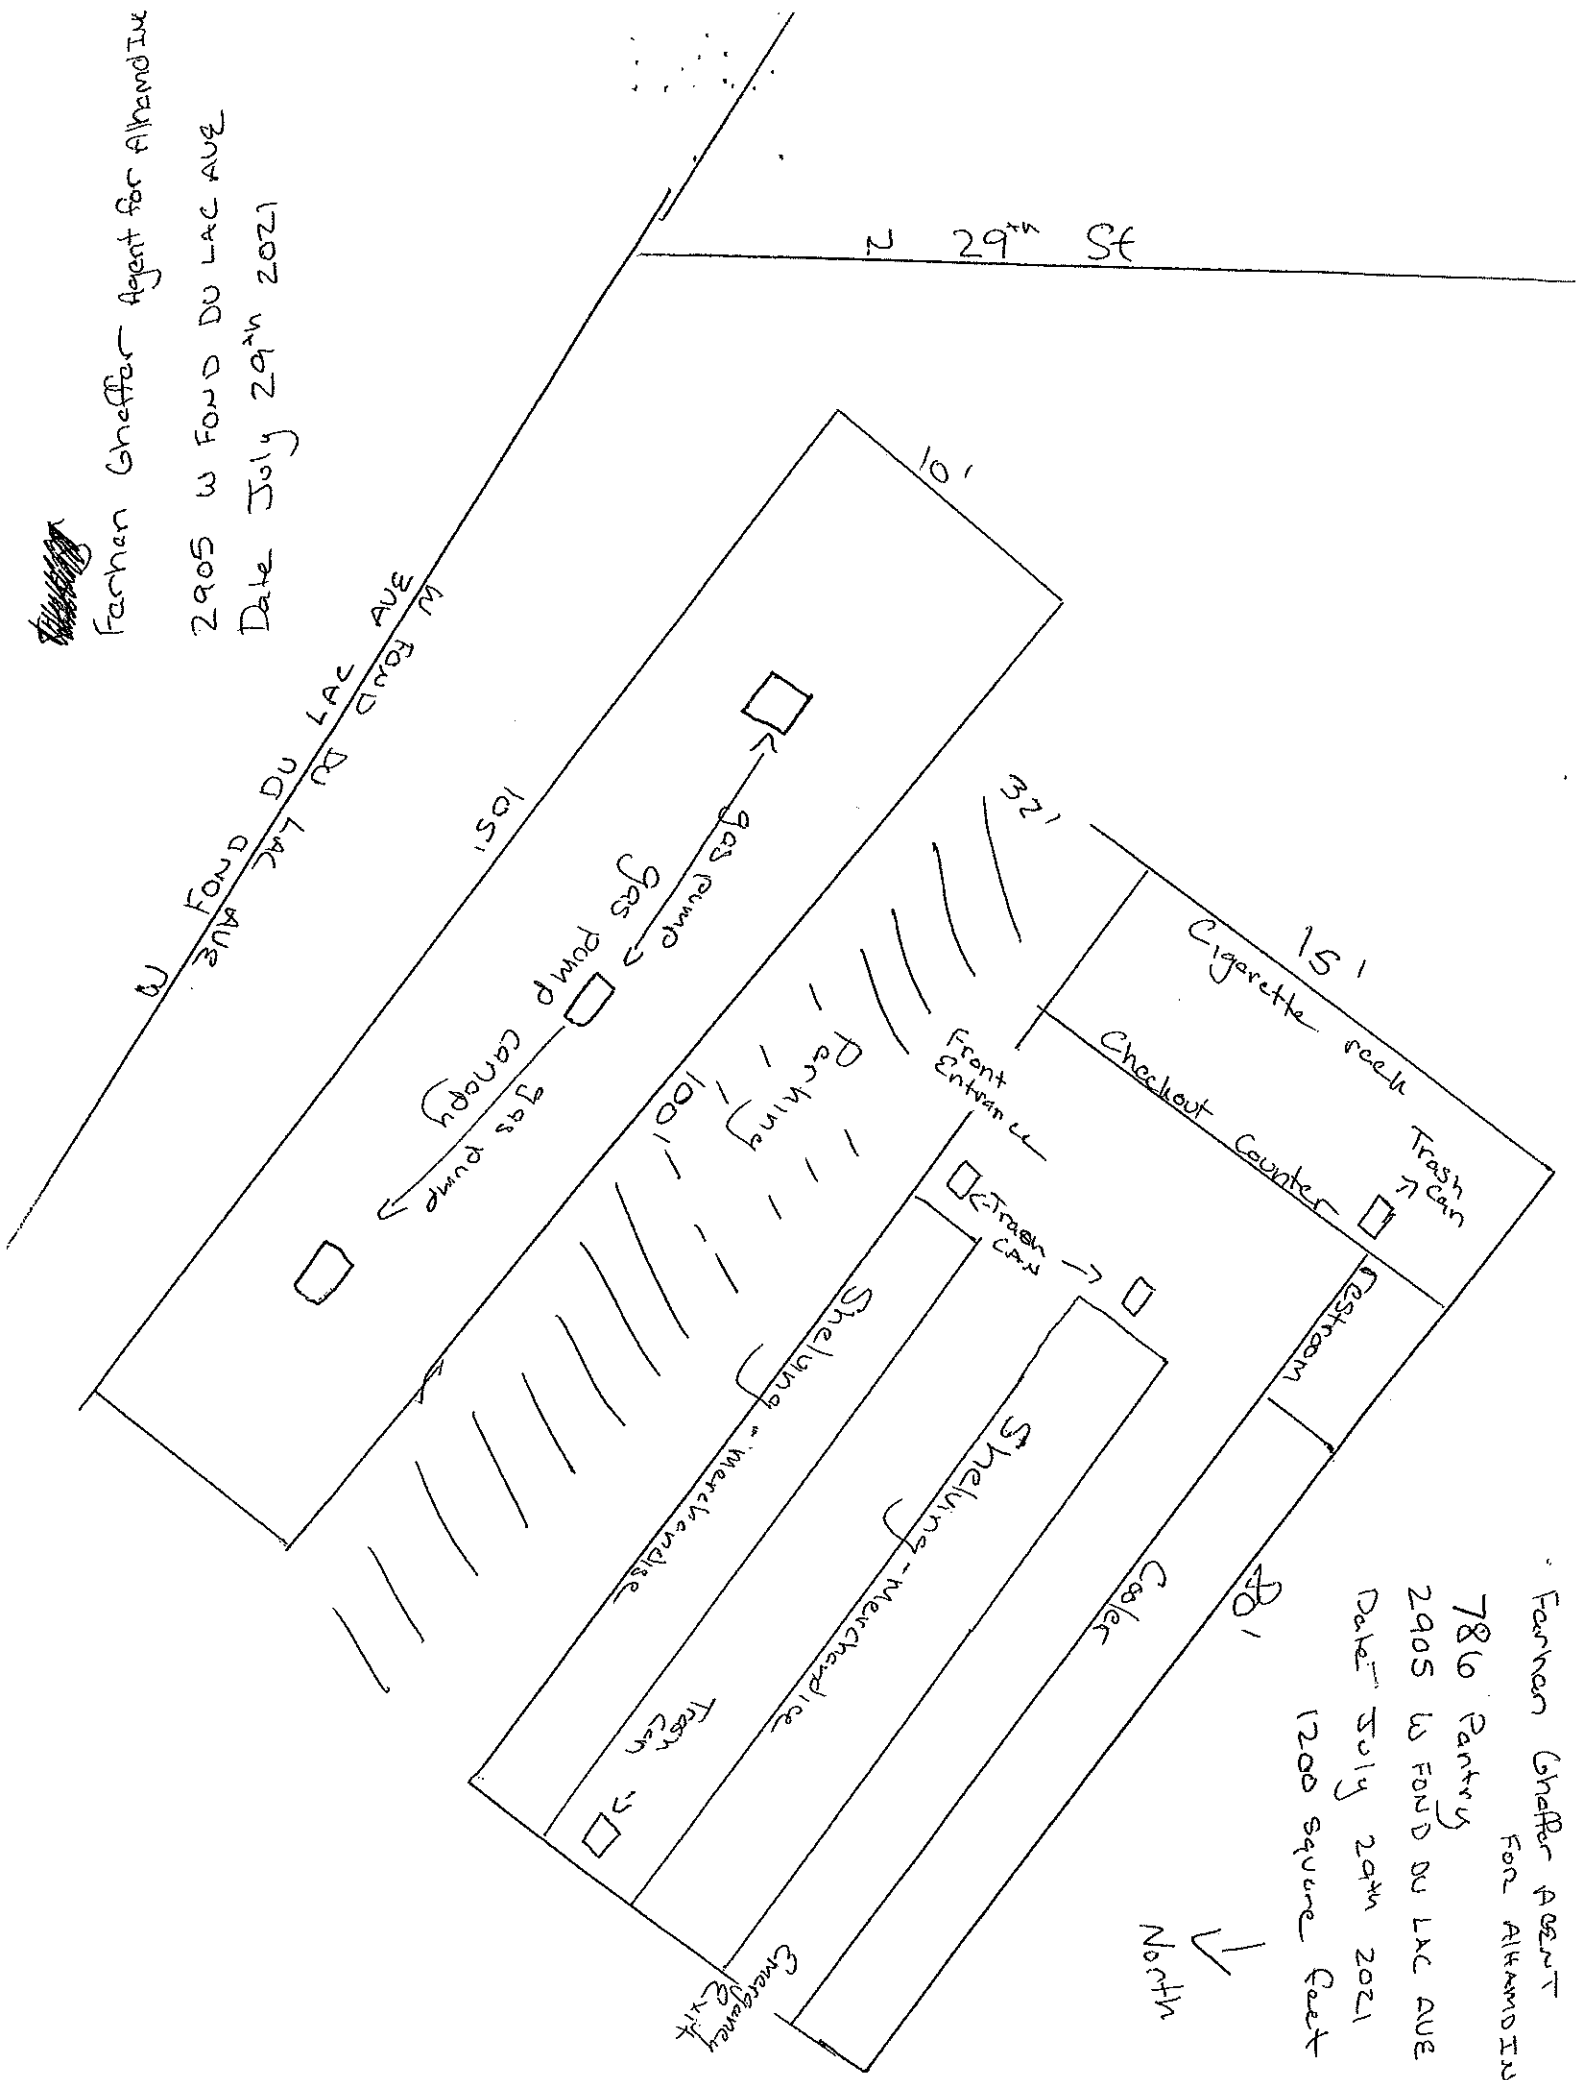 Farhan Ghaffar Agent for Alhamd Inc
2905 W FOND DU LAC AVE
Date July 29th 2021
N 29th St
W FOND DU LAC AVE
W FOND DU LAC AVE
10'
105'
gas pump
gas pump canopy
gas pump
100'
Parking
32'
15'
Cigarette rack
Checkout Counter
Trash
Can
Front
Entrance
Trash
CAN
restroom
Shelving - Merchandise
Shelving - Merchandice
Cooler
80'
Trash
Can
Emergancy
Exit
Farhan Ghaffar AGENT
FOR AlHAMD IN
786 Pantry
2905 W FOND DU LAC AVE
Date July 29th 2021
1200 Square feet
North